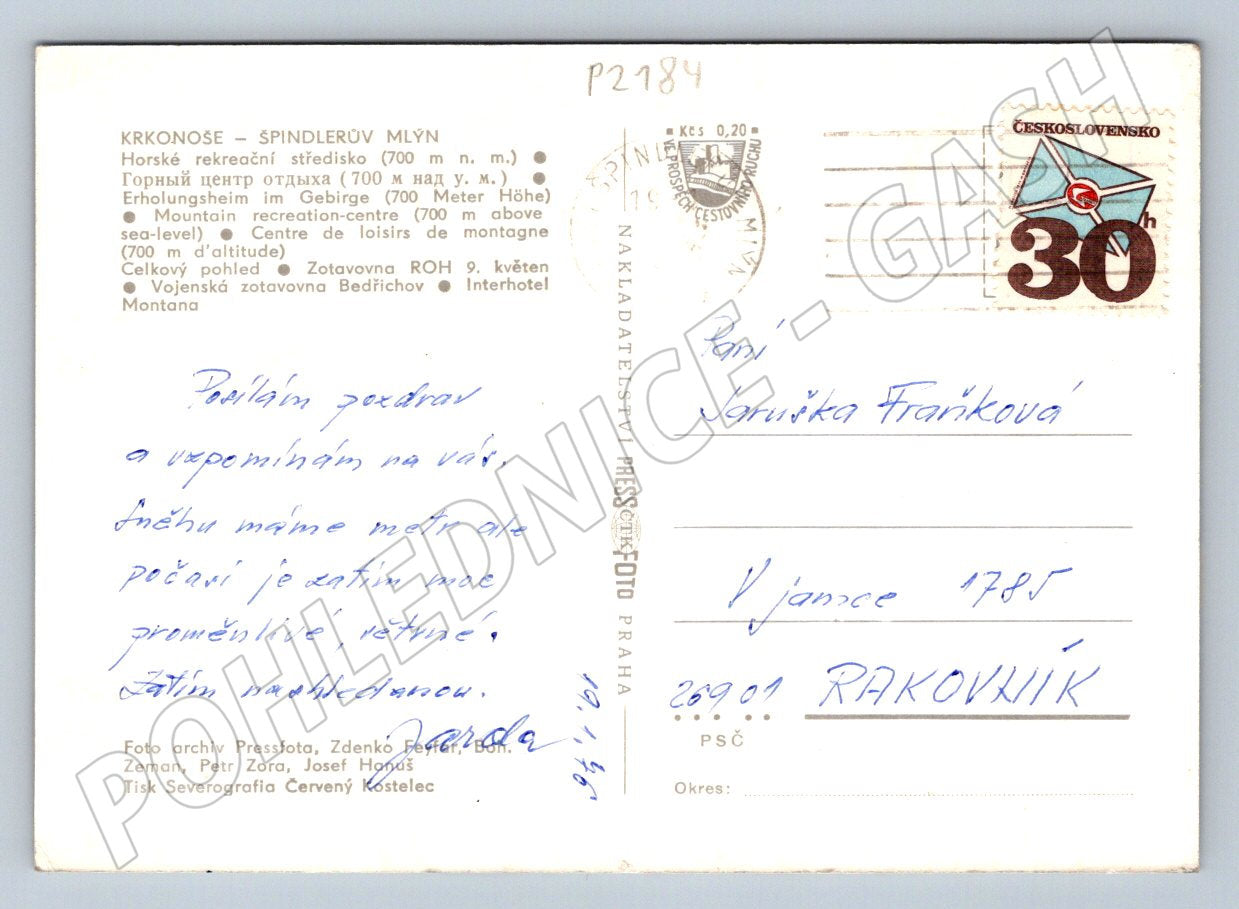 P2184
KRKONOŠE – ŠPINDLERŮV MLÝN
Horské rekreační středisko (700 m n. m.) ●
Горный центр отдыха (700 м над у. м.) ●
Erholungsheim im Gebirge (700 Meter Höhe)
● Mountain recreation-centre (700 m above
sea-level) ● Centre de loisirs de montagne
(700 m d'altitude)
Celkový pohled ● Zotavovna ROH 9. květen
● Vojenská zotavovna Bedřichov ● Interhotel
Montana
Posílám pozdrav
a vzpomínám na vás.
Sněhu máme metr ale
počasí je zatím moc
proměnlivé, větrné.
Zatím nashledanou.
Jarda
19.1.76
Foto archiv Pressfota, Zdenko Feyfar, Boh.
Zeman, Petr Zora, Josef Hanuš
Tisk Severografia Červený Kostelec
NAKLADATELSTVÍ PRESSFOTO PRAHA
ČTK
Kčs 0,20
VE PROSPĚCH CESTOVNÍHO RUCHU
MLÝN
ČESKOSLOVENSKO
30h
Paní
Jaruška Fraňková
V jamce 1785
26901 RAKOVNÍK
PSČ
Okres:
POHLEDNICE - GASH